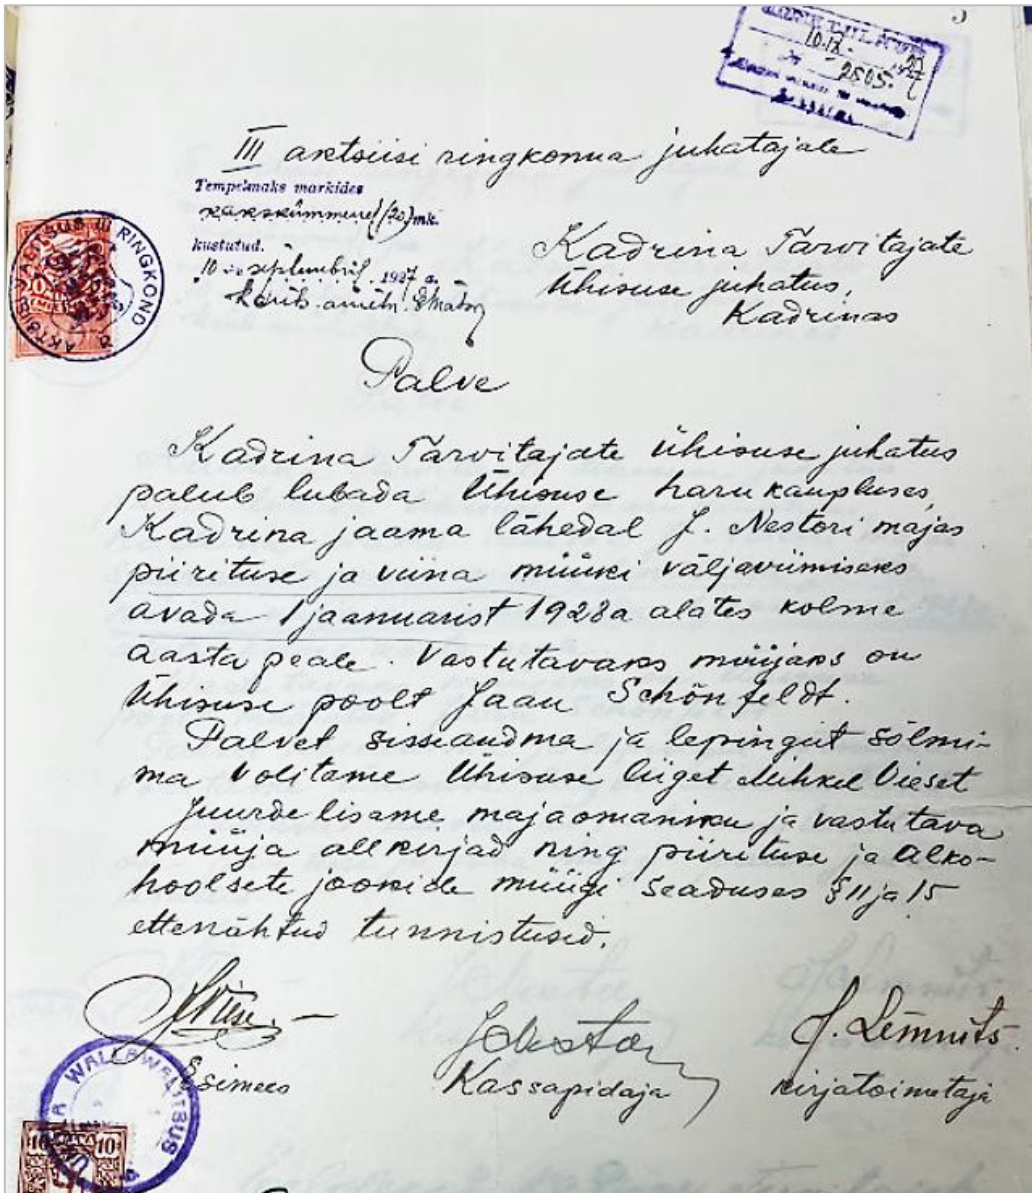 10.IX. 1927
2505.
III aktsiisi ringkonna juhatajale
Tempelmaks markides
kakskümmend (20) mk.
kustutud.
10 septembril 1927 a.
Kadrina Tarvitajate
Ühisuse juhatus,
Kadrinas
AKTSIISIVALITSUS III RINGKOND
20
Palve
Kadrina Tarvitajate Ühisuse juhatus
palub lubada Ühisuse harukaupluses,
Kadrina jaama lähedal J. Nestori majas
piirituse ja viina müüki väljaviimiseks
avada 1 jaanuarist 1928a alates kolme
aasta peale. Vastutavaks müüjaks on
Ühisuse poolt Jaan Schönfeldt.
Palvet sisseandma ja lepingut sõlmi-
ma volitame Ühisuse liiget Mihkel Vieset
Juurde lisame majaomaniku ja vastutava
müüja allkirjad ning piirituse ja alko-
hoolsete jookide müügi seaduses §11 ja 15
ettenähtud tunnistused.
J. Lemnits
Esimees
Kassapidaja
Kirjatoimetaja
WALLAWALITSUS
10 10